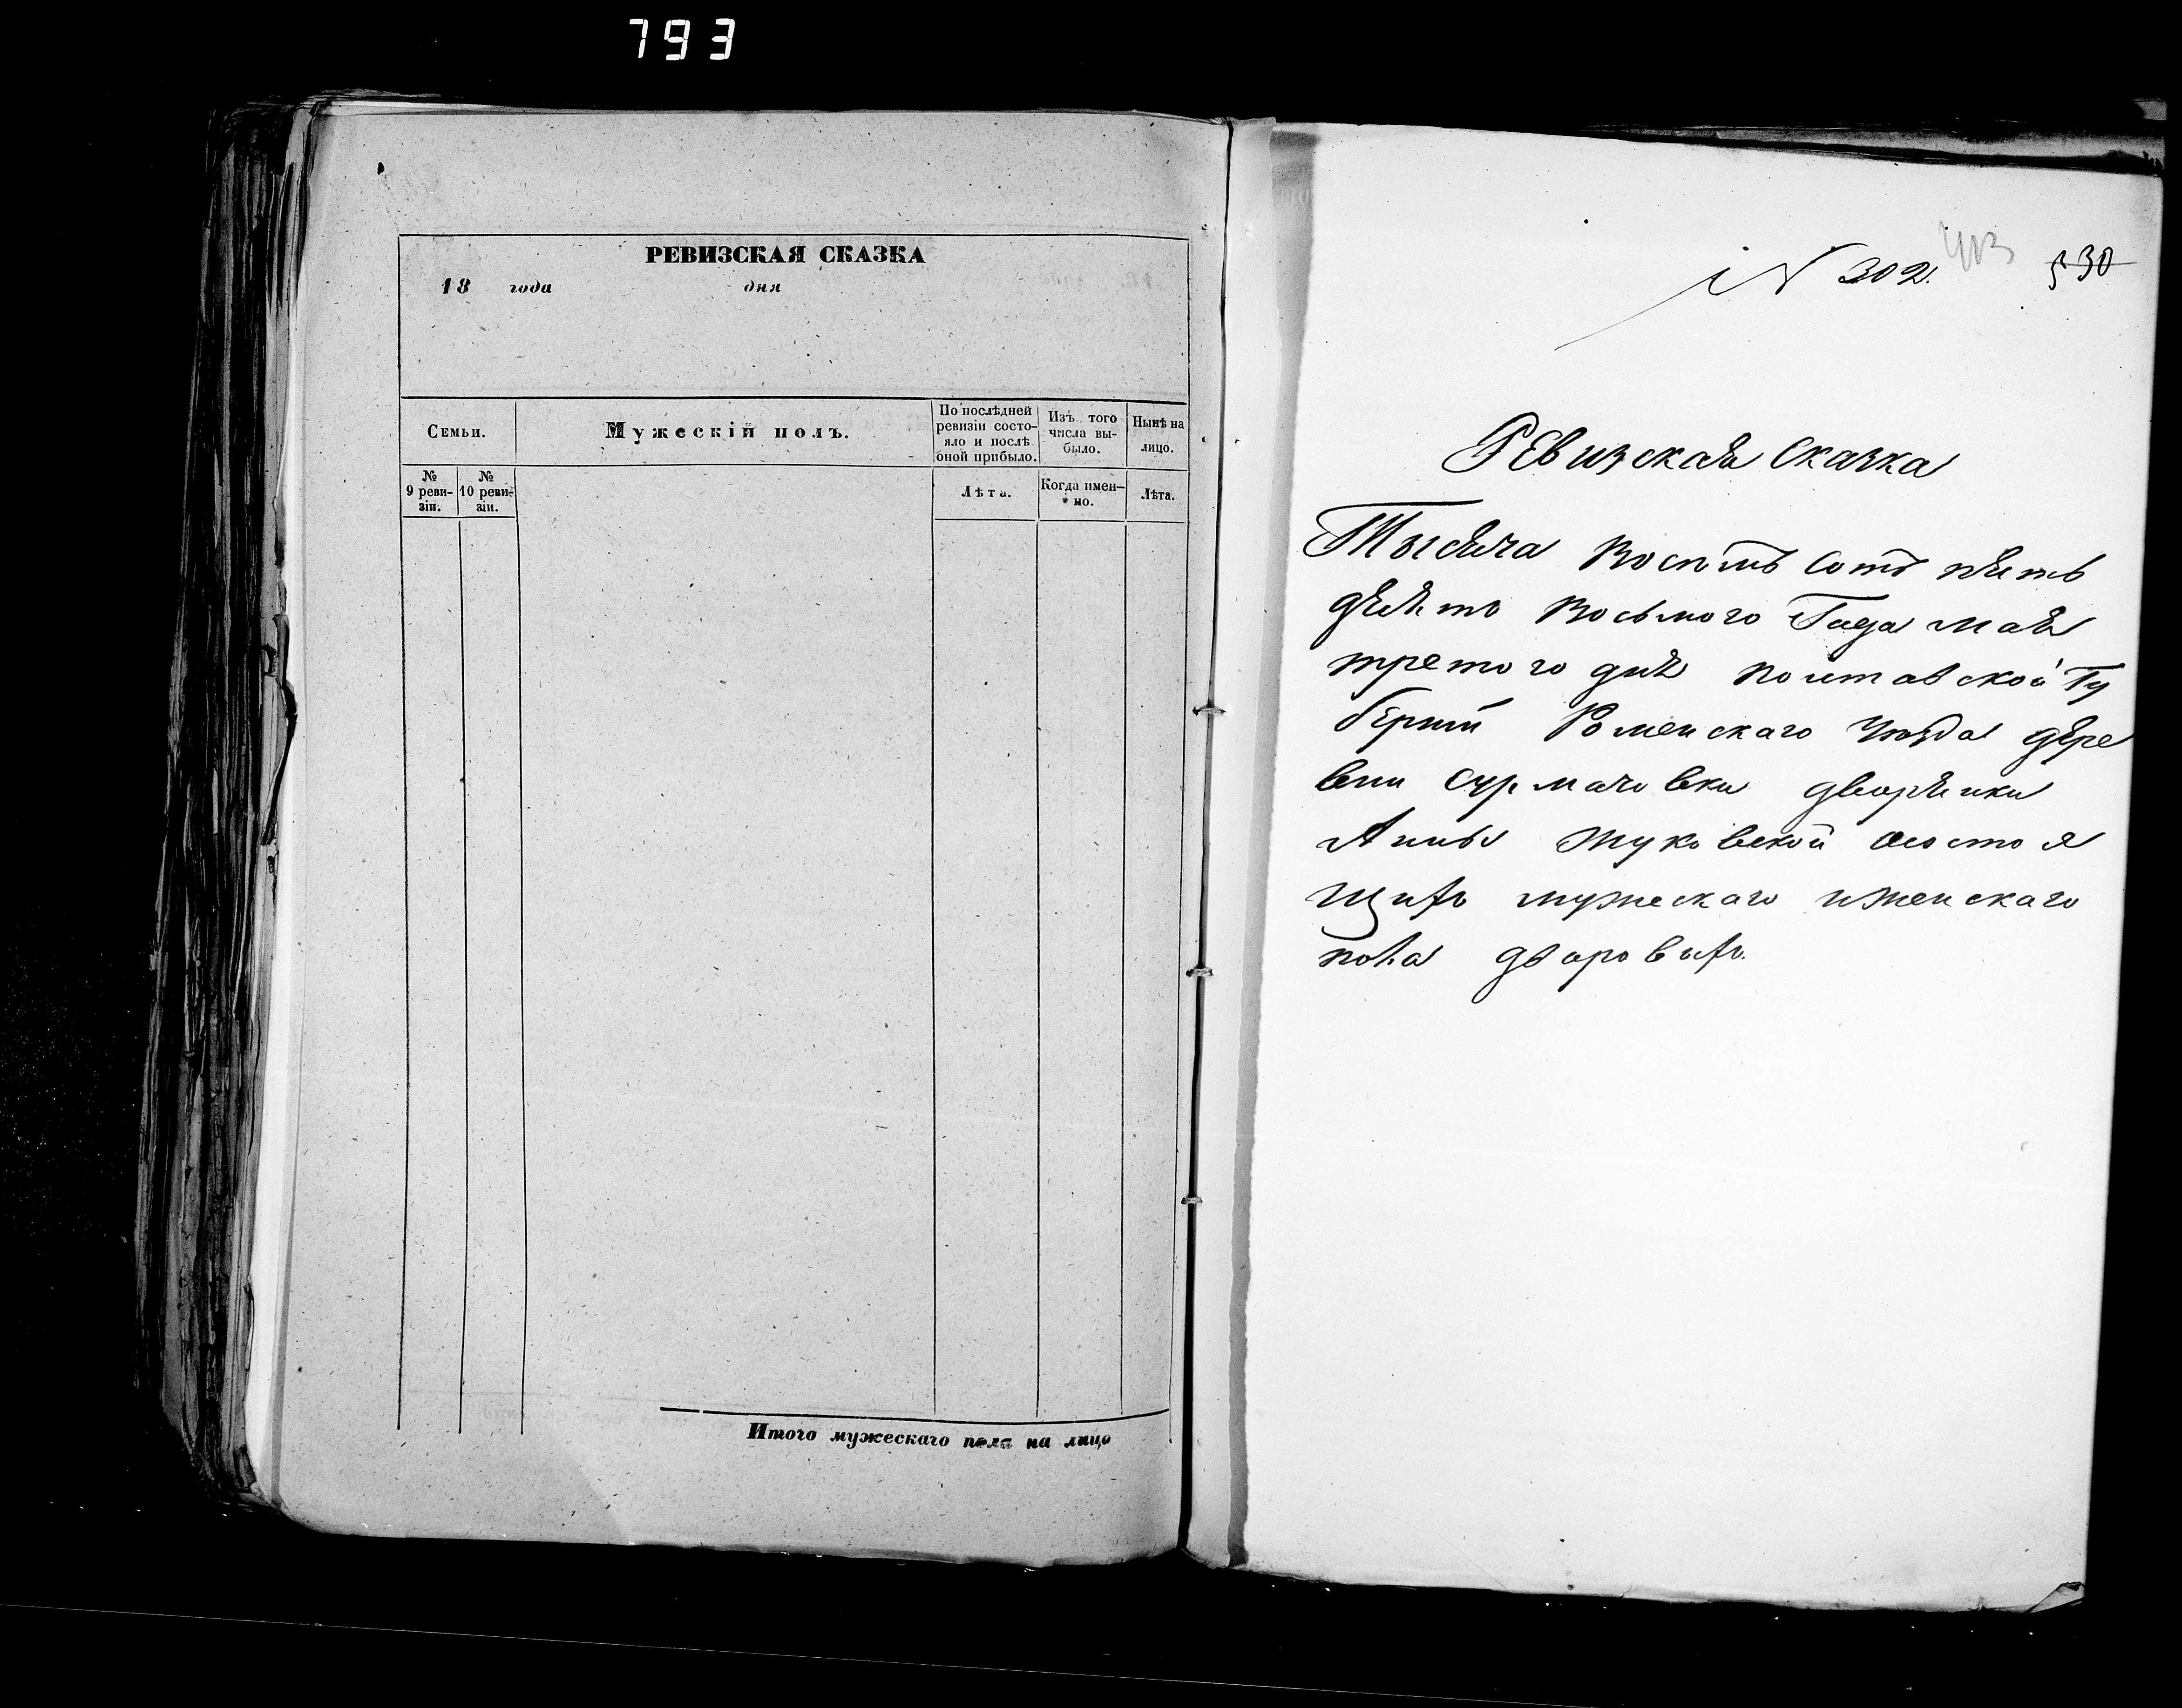 793
РЕВИЗСКАЯ СКАЗКА
18 года дня
Семьи.
Мужескій полъ.
По послѣдней ревизіи состо-
яло и послѣ
оной прибыло.
Изъ того
числа вы-
было.
Нынѣ на
лицо.
№
9 реви-
зіи.
№
10 реви-
зіи.
Лѣта.
Когда имен-
но.
Лѣта.
Итого мужескаго пола на лицо
N 302.
530
Ревизская Сказка
Тысяча Восемь Сотъ пять
десятъ Восьмого Года мая
третого дня Полтавской Гу
берніи Роменскаго Уѣзда дере
вни Сурмачовки дворянки
Анны Жуковской состоя
щихъ мужескаго иженскаго
пола дворовыхъ.